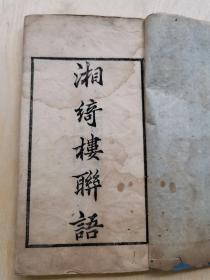 湘綺樓聯語